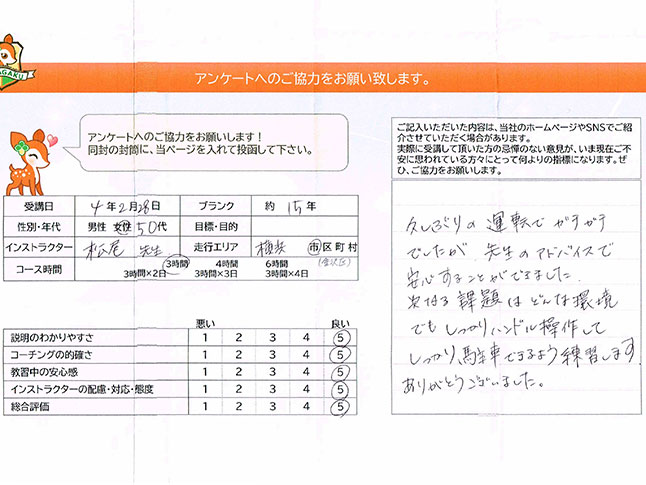 AGAKU
アンケートへのご協力をお願い致します。
アンケートへのご協力をお願いします！
同封の封筒に、当ページを入れて投函して下さい。
受講日 4年2月28日 ブランク 約 15年
性別・年代 男性 女性 50代 目標・目的
インストラクター 松尾 先生 走行エリア 横浜 市区町村
(金沢区)
コース時間 3時間 4時間 6時間
3時間×2日 3時間×3日 3時間×4日
悪い 良い
説明のわかりやすさ 1 2 3 4 5
コーチングの的確さ 1 2 3 4 5
教習中の安心感 1 2 3 4 5
インストラクターの配慮・対応・態度 1 2 3 4 5
総合評価 1 2 3 4 5
ご記入いただいた内容は、当社のホームページやSNSでご紹
介させていただく場合があります。
実際に受講して頂いた方の忌憚のない意見が、いま現在ご不
安に思われている方々にとって何よりの指標になります。ぜ
ひ、ご協力をお願いします。
久しぶりの運転でガチガチ
でしたが、先生のアドバイスで
安心することができました。
次なる課題はどんな環境
でもしっかりハンドル操作して
しっかり駐車できるよう練習します
ありがとうございました。